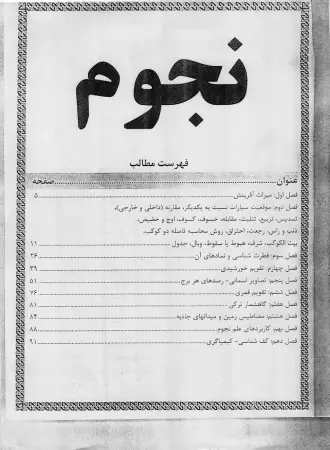 نجوم
فهرست مطالب
عنوان.................................................................صفحه
فصل اول: میراث آفرینش.................................................۵
فصل دوم: موقعیت سیارات نسبت به یکدیگر، مقارنه (داخلی و خارجی)،
تسدیس، تربیع، تثلیث، مقابله، خسوف، کسوف، اوج و حضیض،
ذنب و راس، رجعت، احتراق، روش محاسبه فاصله دو کوکب،
بیت الکوکب، شرف، هبوط یا سقوط، وبال، جدول.................................۱۱
فصل سوم: فطرت شناسی و نمادهای آن.................................۲۶
فصل چهارم: تقویم خورشیدی.................................۳۹
فصل پنجم: تصاویر آسمانی - رصدهای هر برج.................................۵۱
فصل ششم: تقویم قمری.................................۷۶
فصل هفتم: گاهشمار ترکی.................................۸۱
فصل هشتم: مغناطیس زمین و میدانهای جاذبه.................................۸۴
فصل نهم: کاربردهای علم نجوم.................................۸۸
فصل دهم: کف شناسی - کیمیاگری.................................۹۱